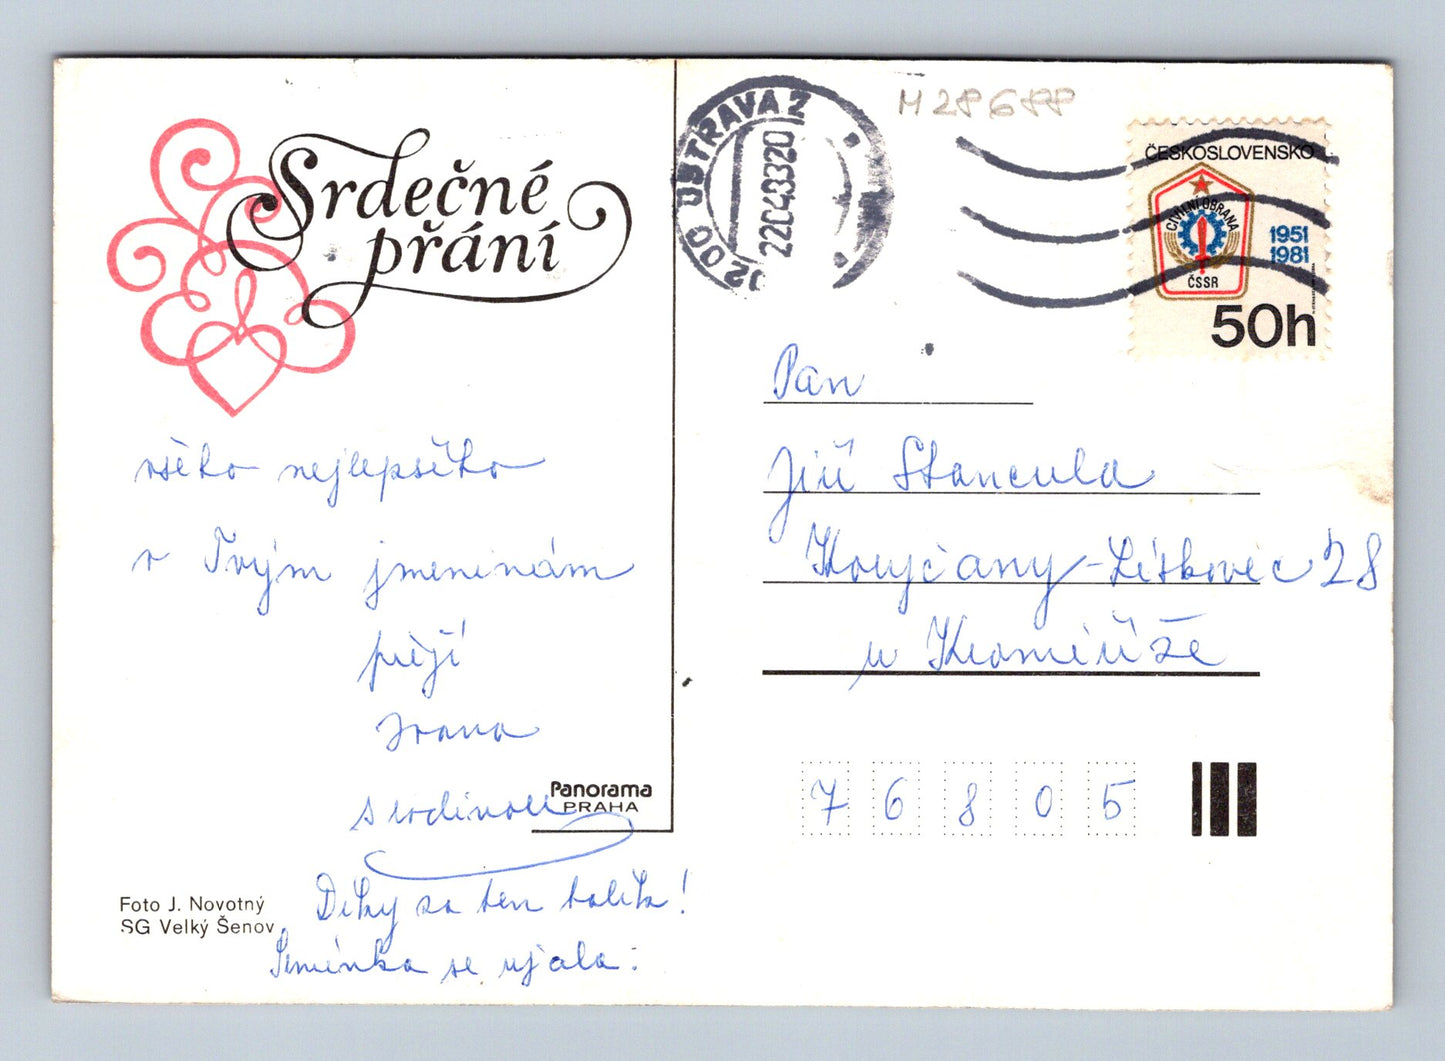 Srdečné
přání
všeho nejlepšího
v Tvým jmeninám
přejí
Ivana
s rodinou
Díky za ten balík!
Semínka se ujala:
Panorama
PRAHA
Foto J. Novotný
SG Velký Šenov
OSTRAVA 2
22.04.83 20
M 28 G 88
ČESKOSLOVENSKO
CIVILNÍ OBRANA
ČSSR
1951
1981
50h
Pan
Jiří Stancula
Litkovic 28
u Kroměříže
7 6 8 0 5